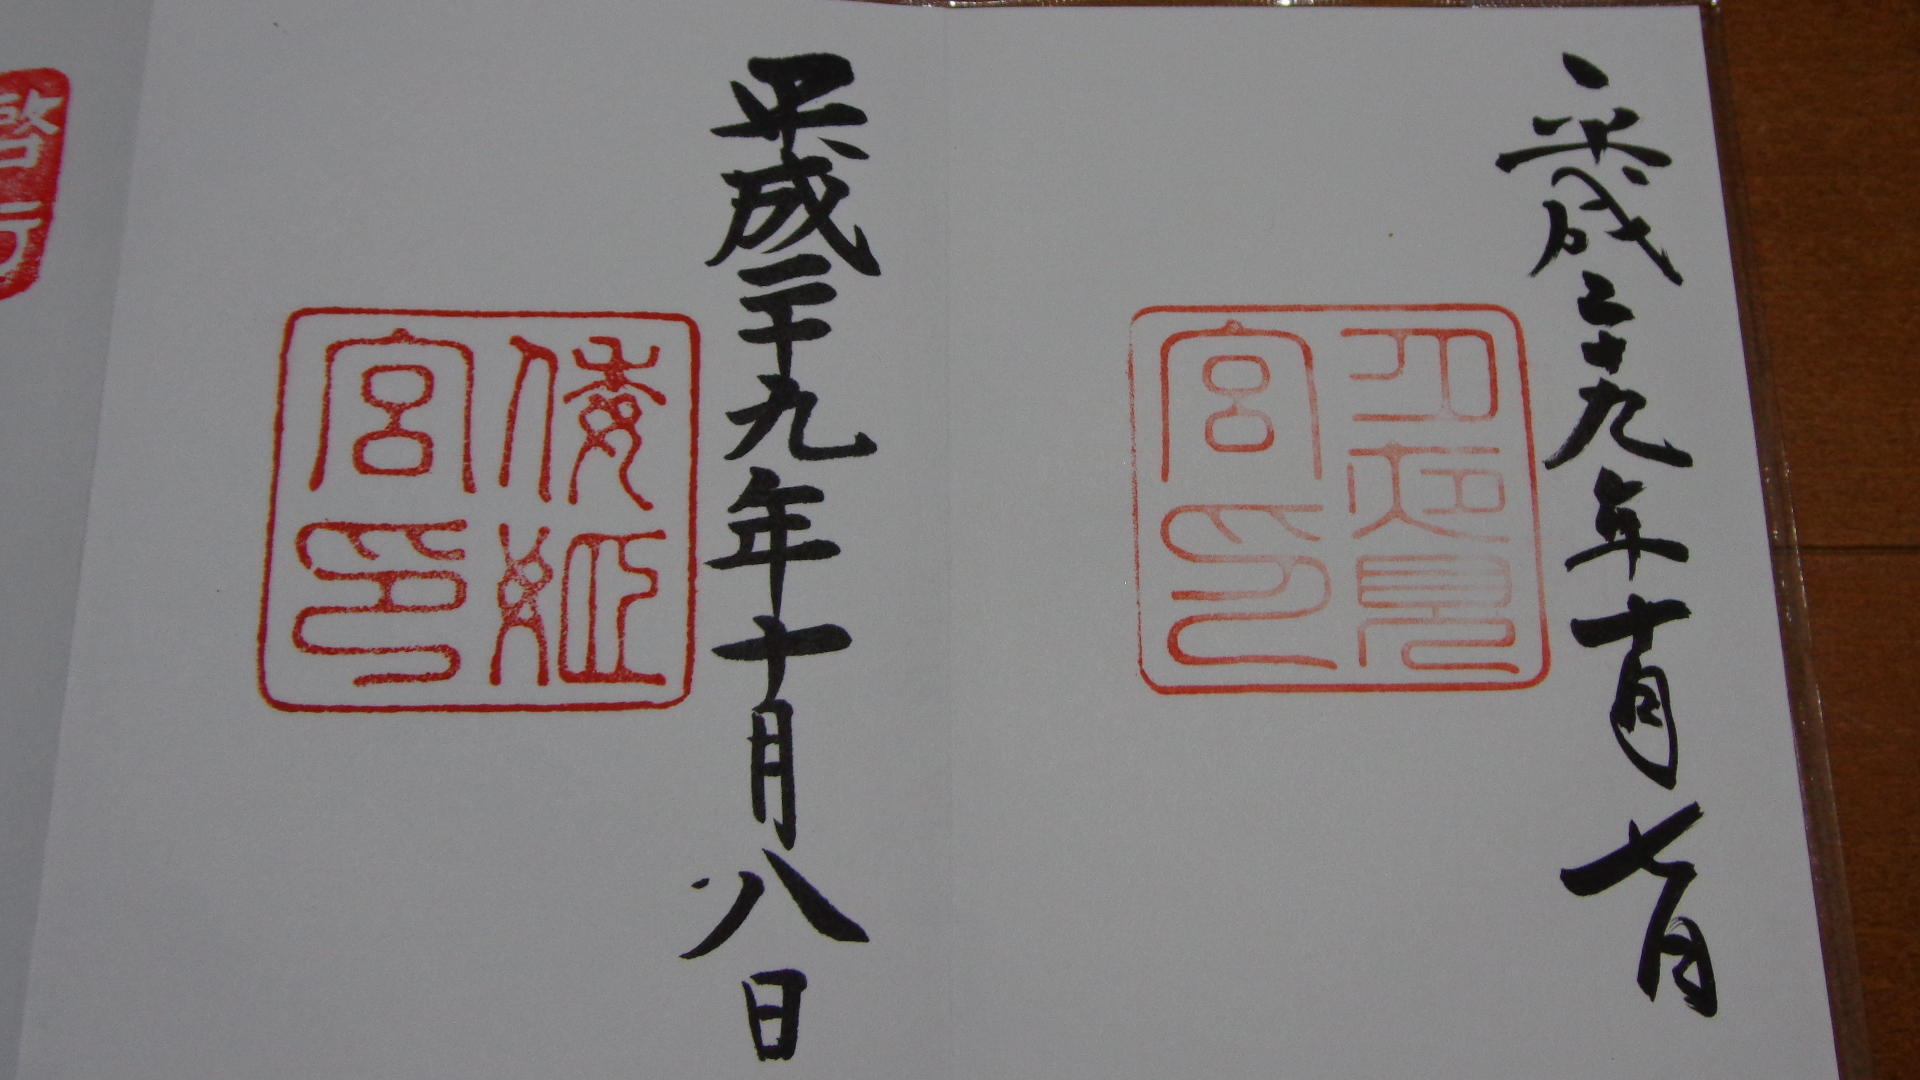 平成二十九年十月七日
月夜見
宮印
平成二十九年十月八日
倭姫
宮印
啓行